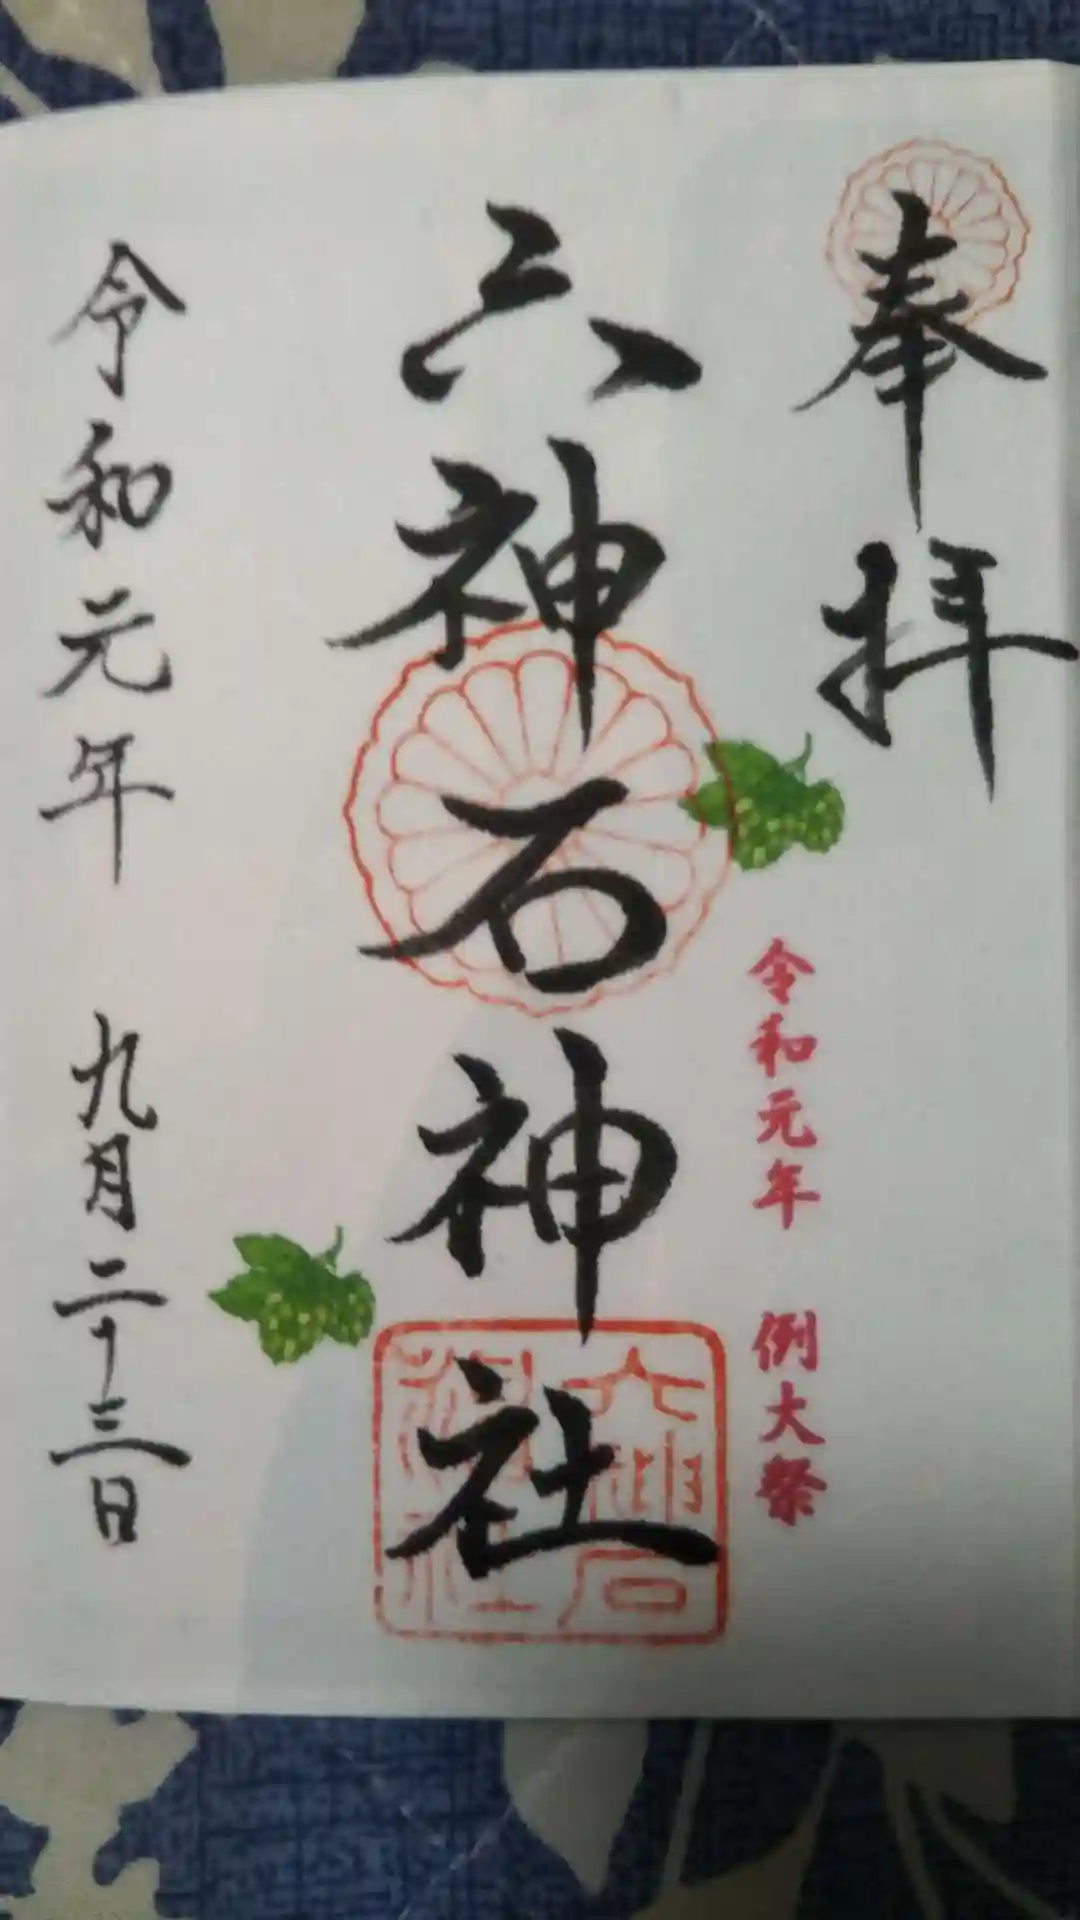 奉拝
令和元年 例大祭
六神石神社
六神石
神社
令和元年 九月二十三日